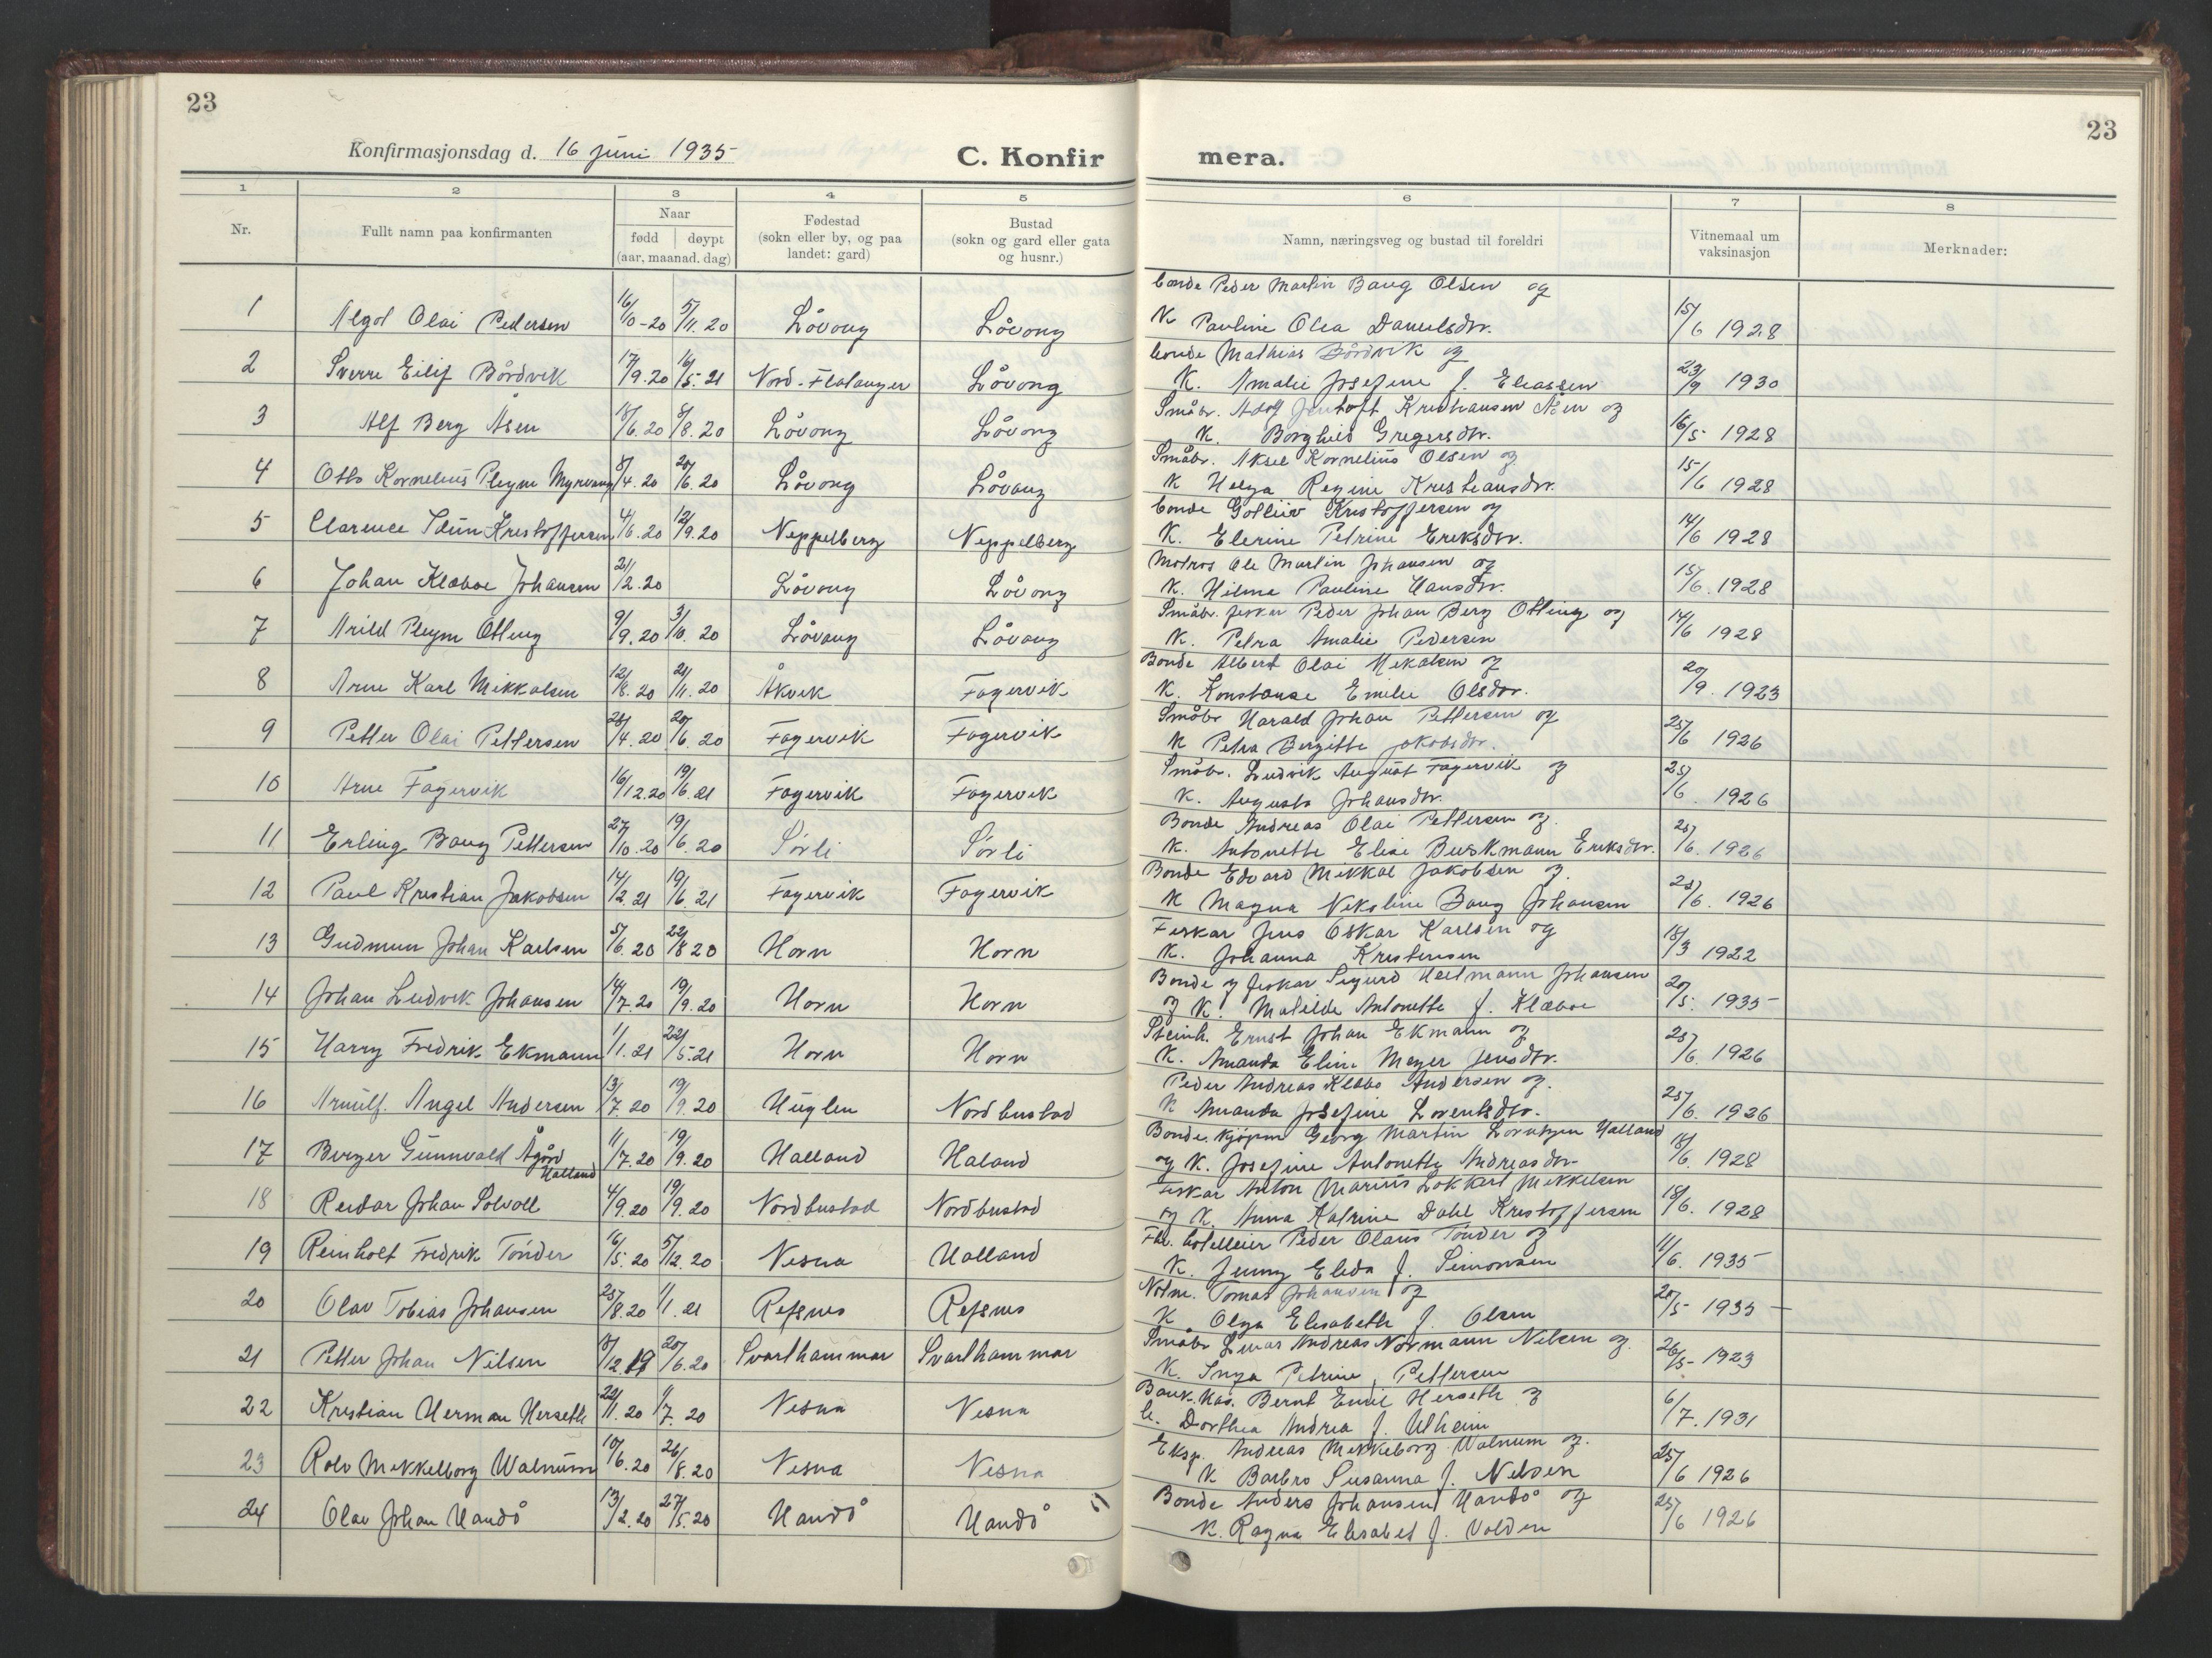 23
23
Konfirmasjonsdag d. 16 juni 1935
C. Konfir mera.
1 2 3 4 5 6 7 8
Nr.
Fullt namn paa konfirmanten
Naar
fødd døypt
(aar, maanad. dag)
Fødestad
(sokn eller by, og paa
landet: gard)
Bustad
(sokn og gard eller gata
og husnr.)
Namn, næringsveg og bustad til foreldri
Vitnemaal um
vaksinasjon
Merknader:
bonde Peder Martin Baug Olsen og
1 Algot Olai Pedersen 16/10-20 5/11.20 Løvong Løvong K Pauline Olea Danielsdtr. 15/6 1928
bonde Mathias Bårdvik og
2 Sverre Eilif Bårdvik 17/9.20 16/5.21 Nord-Flatanger Løvong K. Amalie Josefine f. Eliassen 23/9 1930
Småbr. Adolf Jentoft Kristiansen Åsen og
3 Alf Berg Åsen 15/6.20 8/8.20 Løvong Løvong K. Borghild Gregersdtr. 16/5 1928
Småbr. Aksel Kornelius Olsen og
4 Otto Kornelius Pleym Myrvang 8/4.20 20/6.20 Løvong Løvong K Helga Regine Kristiansdtr. 15/6 1928
bonde Gotleiv Kristoffersen og
5 Clarence Idun Kristoffersen 4/6.20 12/9.20 Neppelberg Neppelberg K. Elerine Petrine Eriksdtr. 14/6 1928
Matros Ole Martin Johansen og
6 Johan Klæboe Johansen 21/2.20 Løvong Løvong K. Hilma Pauline Hansdtr. 15/6.1928
Småbr. fiskar Peder Johan Berg Otting og
7 Arild Pleym Otting 9/9.20 3/10.20 Løvong Løvong K. Petra Amalie Pedersen 14/6 1928
Bonde Albert Olai Mikalsen og
8 Arne Karl Mikkalsen 12/8.20 21/11.20 Åkvik Fagervik K. Konstanse Emilie Olsdtr. 20/9.1923
Småbr Harald Johan Pettersen og
9 Petter Olai Pettersen 28/4.20 20/6.20 Fagervik Fagervik K Petra Bergitte Jakobsdtr. 25/6 1926
Småbr. Ludvik August Fagervik og
10 Arne Fagervik 16/12.20 19/6.21 Fagervik Fagervik K. Augusta Johansdtr. 25/6.1926
Bonde Andreas Olai Pettersen og.
11 Erling Baug Pettersen 27/10.20 19/6.20 Sørli Sørli K. Antonette Elise Buskmann Eriksdtr. 25/6.1926
Bonde Edvard Mikkal Jakobsen og.
12 Paul Kristian Jakobsen 14/2.21 19/6.21 Fagervik Fagervik K Magna Nikoline Baug Johansen 25/6.1926
Fiskar Jens Oskar Karlsen og
13 Gudmun Johan Karlsen 5/6.20 22/8 20 Horn Horn K. Johanna Kristensen 15/3 1922
Bonde og fiskar Sigurd Heitmann Johansen
14 Johan Ludvik Johansen 14/7.20 19/9.20 Horn Horn og K. Matilde Antonette f. Klæboe 20/5.1935
Steinh. Ernst Johan Ekmann og
15 Harry Fredrik Ekmann 1/1.21 22/5.21 Horn Horn K. Amanda Eline Meyer Jensdtr. 25/6.1926
Peder Andreas Klæbo Andersen og.
16 Arnulf. Angel Andersen 13/7.20 19/9.20 Huglen Nordbustad K Amanda Josefine Lorentsdtr. 25/6.1926
Bonde. kjøpm Georg Martin Lorntzen Halland
17 Birger Gunnvald Ågård Halland 11/7.20 19/9.20 Halland Haland og K. Josefine Antonette Andreasdtr. 18/6.1928
Fiskar Anton Marius Lokkert Mikkelsen
18 Reidar Johan Solvoll 4/9.20 19/9.20 Nordbustad Nordbustad og K. Anna Katrine Dahl Kristoffersen 18/6.1928
Fhv. hotelleier Peder Olaus Tønder og
19 Reinholt Fredrik Tønder 16/5.20 5/12.20 Nesna Halland K. Jenny Elida f. Simonsen 11/6.1935
Notm. Tomas Johansen og
20 Olav Tobias Johansen 25/8.20 1/1.21 Refsnes Refsnes K Olga Elisabeth f. Olsen 20/5 1935
Småbr Einar Andreas Normann Nilsen og.
21 Petter Johan Nilsen 8/12.19 20/6.20 Svarthammar Svarthammar K. Inga Petrine, Pettersen 26/5-1923
Bank.kas. Bernt Emil Herseth og
22 Kristian Herman Herseth 22/1.20 1/7.20 Nesna Nesna h. Dorthea Andrea f. Ulheim 6/7.1931
Eksp. Andreas Mikkelborg Walnum og.
23 Rolv Mikkelborg Walnum 10/6.20 26/8.20 Nesna Nesna K Barbro Susanna f. Nilsen 25/6 1926
Bonde Anders Johansen Handø og
24 Olav Johan Handø 13/2.20 27/5.20 Handø Handø K. Ragna Elisabet f. Volden 25/6 1926